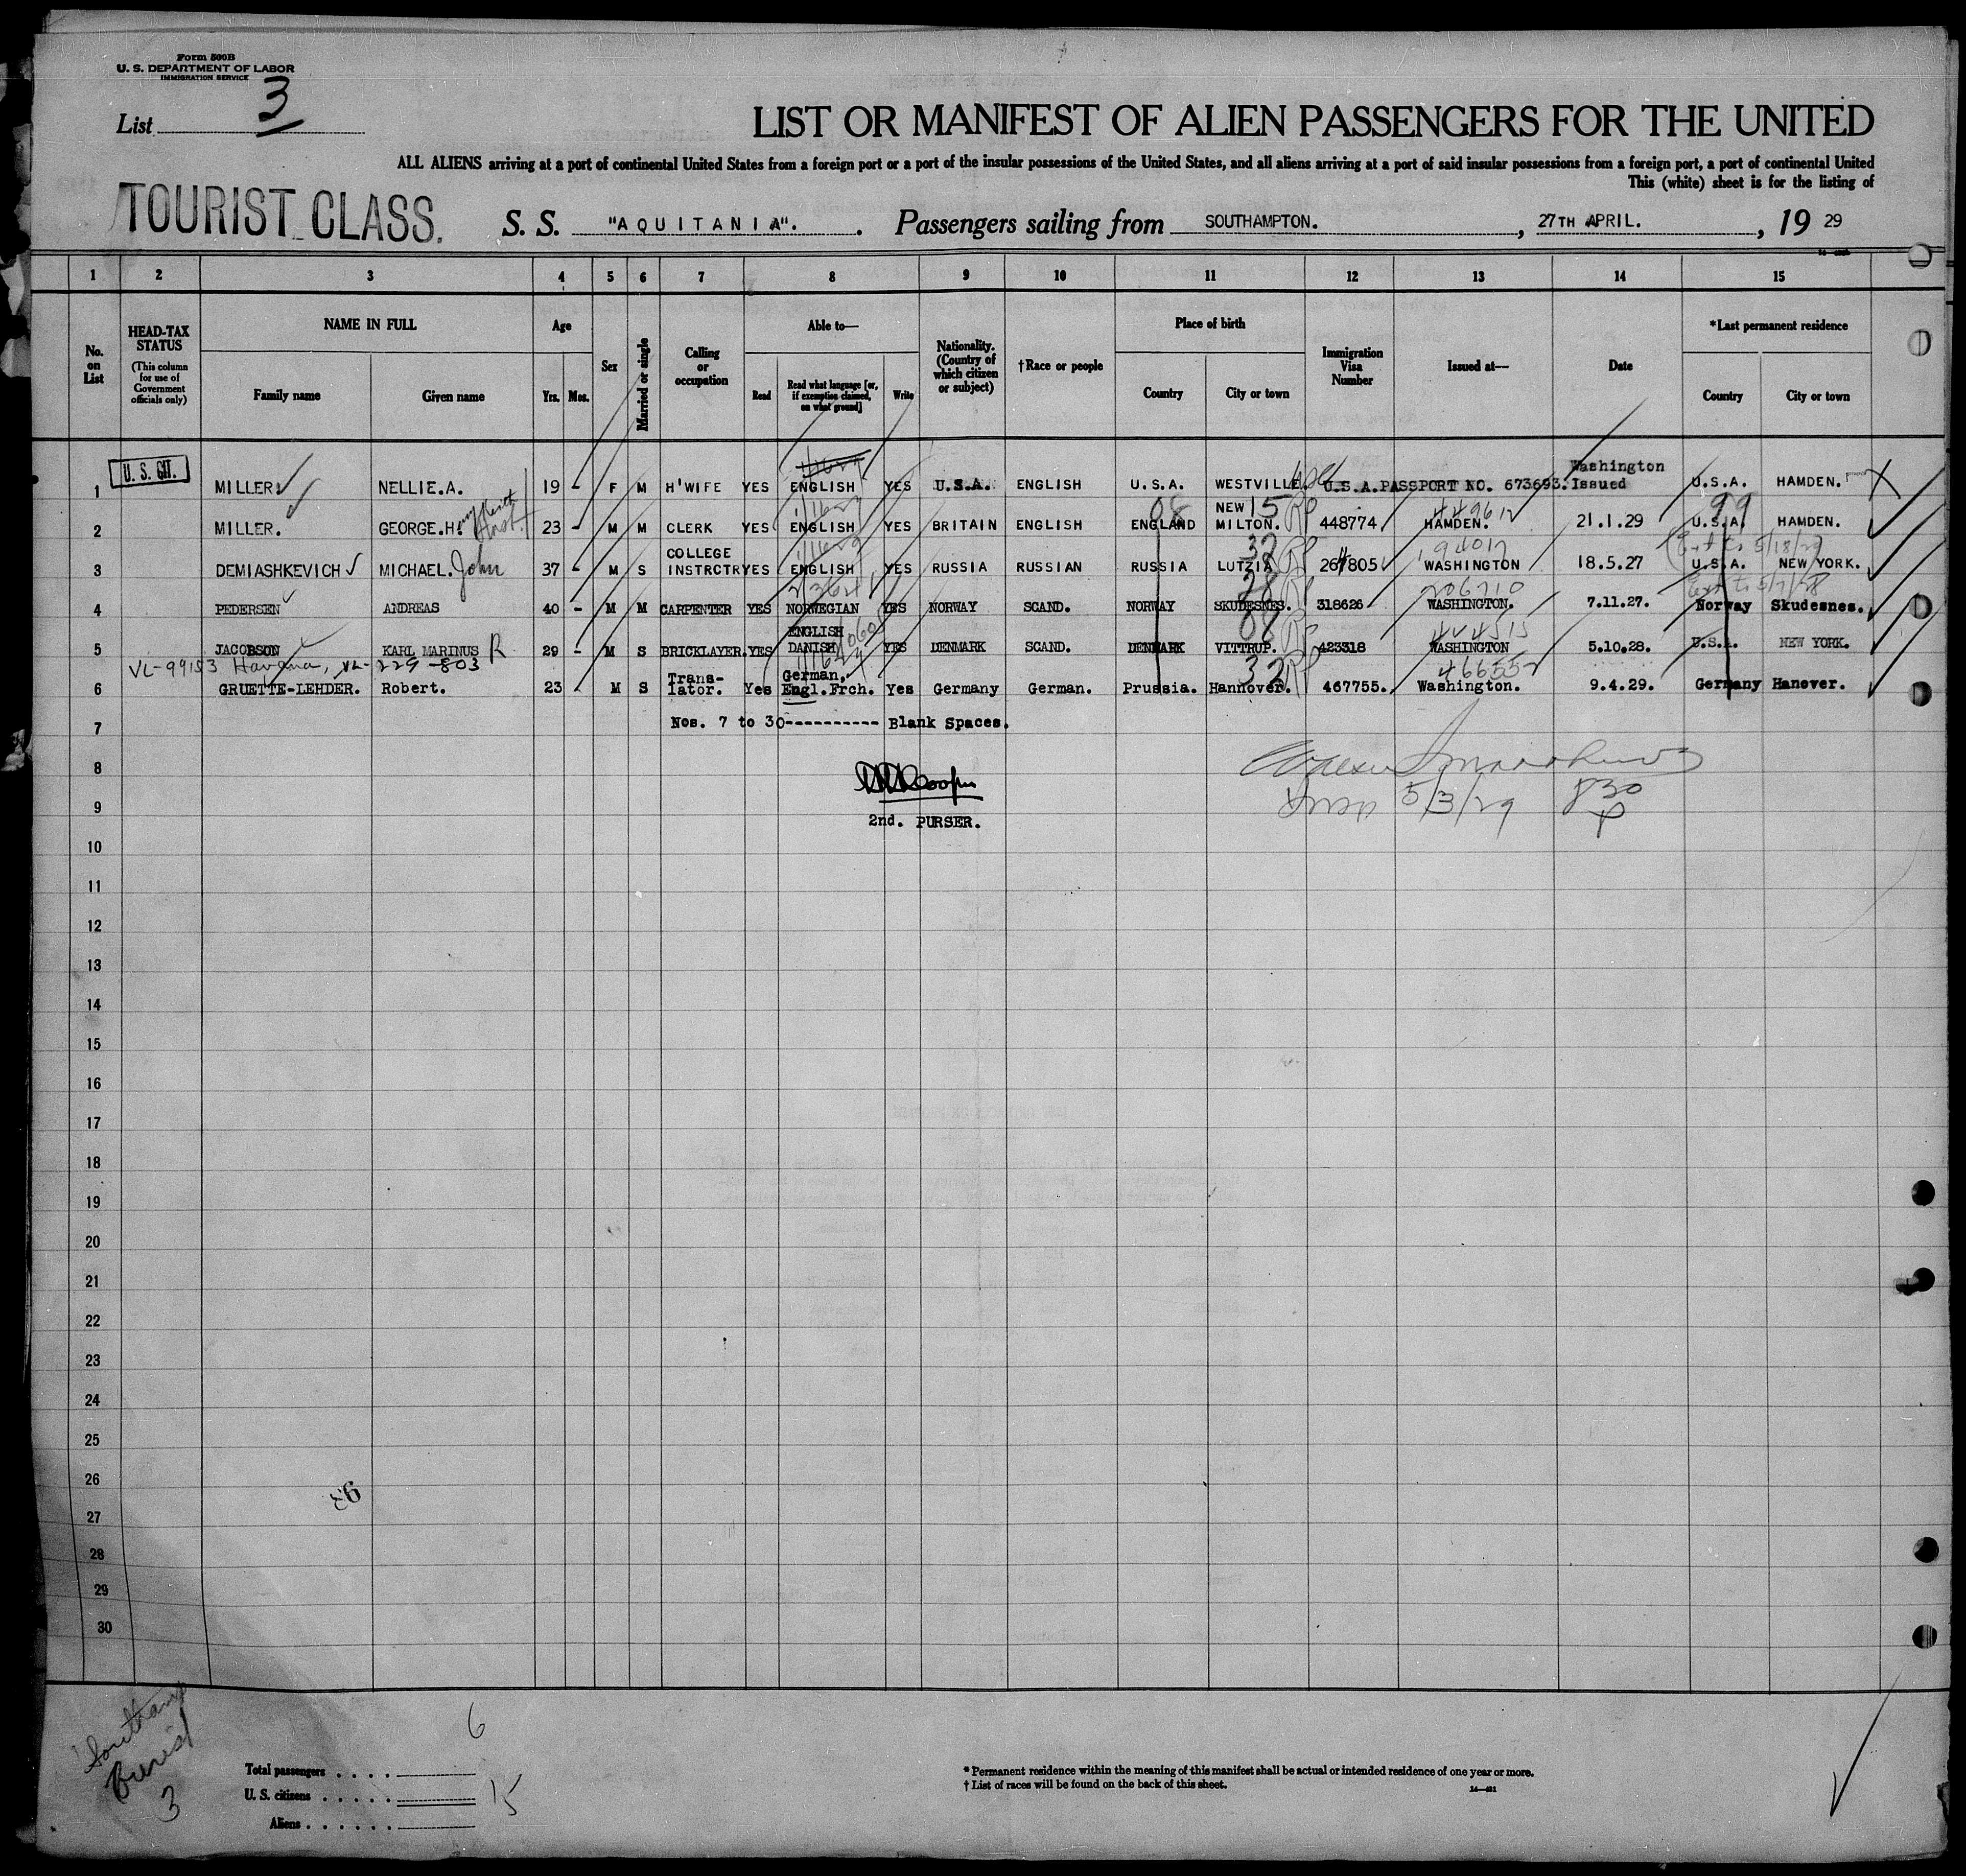 Form 500B
U. S. DEPARTMENT OF LABOR
IMMIGRATION SERVICE
List 3
LIST OR MANIFEST OF ALIEN PASSENGERS FOR THE UNITED
ALL ALIENS arriving at a port of continental United States from a foreign port or a port of the insular possessions of the United States, and all aliens arriving at a port of said insular possessions from a foreign port, a port of continental United
This (white) sheet is for the listing of
TOURIST CLASS. S. S. "AQUITANIA". Passengers sailing from SOUTHAMPTON. , 27TH APRIL. , 19 29
1 2 3 4 5 6 7 8 9 10 11 12 13 14 15
No. on List
HEAD-TAX STATUS (This column for use of Government officials only)
NAME IN FULL
Family name Given name
Age
Yrs. Mos.
Sex
Married or single
Calling or occupation
Able to—
Read Read what language [or, if exemption claimed, on what ground] Write
Nationality. (Country of which citizen or subject)
†Race or people
Place of birth
Country City or town
Immigration Visa Number
Issued at—
Date
*Last permanent residence
Country City or town
Washington
1 U. S. CIT. MILLER. NELLIE.A. 19 - F M H'WIFE YES ENGLISH YES U.S.A. ENGLISH U.S.A. WESTVILLE. U.S.A.PASSPORT NO. 673693. Issued U.S.A. HAMDEN. X
08 NEW 15 RP 449612 99
2 MILLER. GEORGE.H. 23 - M M CLERK YES ENGLISH YES BRITAIN ENGLISH ENGLAND MILTON. 448774. HAMDEN. 21.1.29 U.S.A. HAMDEN.
COLLEGE 32 RP 194017 Ext to 5/18/29
3 DEMIASHKEVICH MICHAEL. John 37 - M S INSTRCTR YES ENGLISH YES RUSSIA RUSSIAN RUSSIA LUTZIA 267805 WASHINGTON 18.5.27 U.S.A. NEW YORK.
28 RP 206710
4 PEDERSEN ANDREAS 40 - M M CARPENTER YES NORWEGIAN YES NORWAY SCAND. NORWAY SKUDESNES. 318626 WASHINGTON. 7.11.27. Norway Skudesnes.
ENGLISH 08 RP
5 JACOBSON KARL MARINUS R 29 - M S BRICKLAYER. YES DANISH YES DENMARK SCAND. DENMARK VITTRUP. 423318 WASHINGTON 5.10.28. U.S.A. NEW YORK.
VL-99153 Havana, VL-229-803
Trans- German, 32 RP 466552
6 GRUETTE-LEHDER. Robert. 23 M S lator. Yes Engl.Frch. Yes Germany German. Prussia. Hannover. 467755. Washington. 9.4.29. Germany Hanover.
7 Nos. 7 to 30---------- Blank Spaces.
8
9 Insp 5/3/29 830
2nd. PURSER.
10
11
12
13
14
15
16
17
18
19
20
21
22
23
24
25
26
27
28
29
30
Tourist
3
6
Total passengers . . . .
U. S. citizens . . . . .
15
Aliens . . . . . .
* Permanent residence within the meaning of this manifest shall be actual or intended residence of one year or more.
† List of races will be found on the back of this sheet.